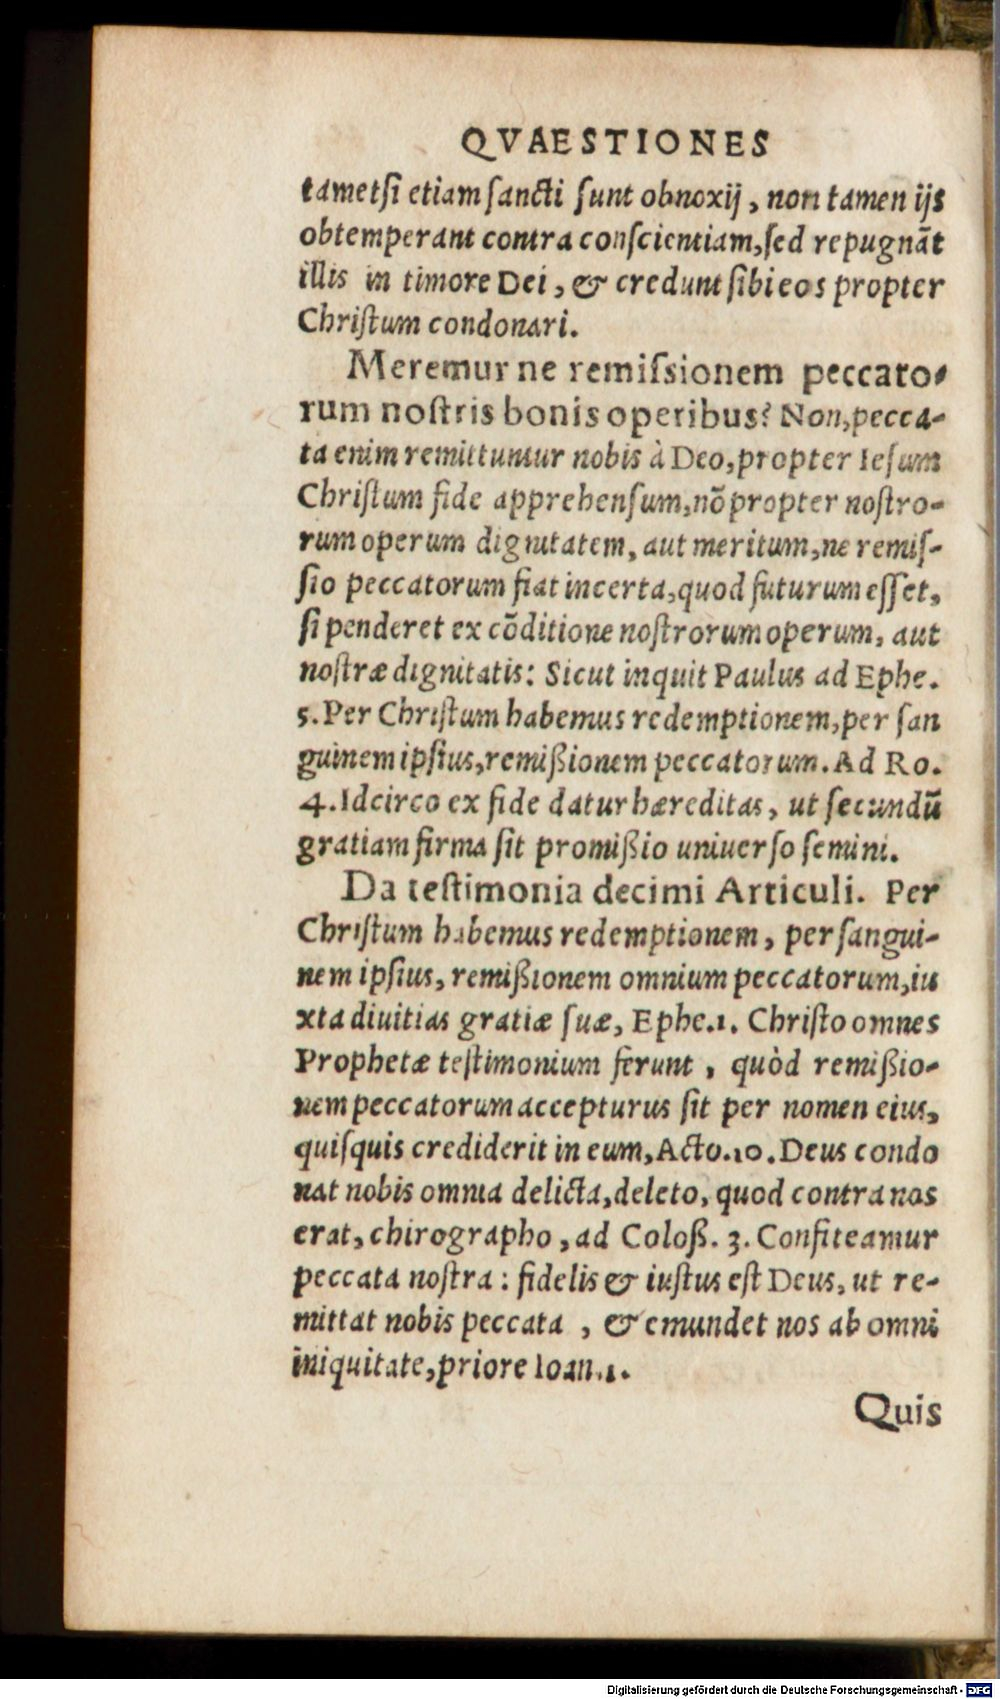 QVAESTIONES
tametſi etiam ſancti ſunt obnoxij, non tamen ijs
obtemperant contra conſcientiam, ſed repugnāt
illis in timore Dei, & credunt ſibi eos propter
Chriſtum condonari.
Meremur ne remiſsionem peccato-
rum noſtris bonis operibus? Non, pecca-
ta enim remittuntur nobis à Deo, propter Ieſum
Chriſtum fide apprehenſum, nō propter noſtro-
rum operum dignitatem, aut meritum, ne remiſ-
ſio peccatorum fiat incerta, quod futurum eſſet,
ſi penderet ex cōditione noſtrorum operum, aut
noſtræ dignitatis: Sicut inquit Paulus ad Ephe.
5. Per Chriſtum habemus redemptionem, per ſan
guinem ipſius, remißionem peccatorum. Ad Ro.
4. Idcirco ex fide datur hæreditas, ut ſecundū
gratiam firma ſit promißio uniuerſo ſemini.
Da teſtimonia decimi Articuli. Per
Chriſtum habemus redemptionem, per ſangui-
nem ipſius, remißionem omnium peccatorum, iu
xta diuitias gratiæ ſuæ, Ephe.1. Chriſto omnes
Prophetæ teſtimonium ferunt, quòd remißio-
nem peccatorum accepturus ſit per nomen eius,
quiſquis crediderit in eum, Acto.10. Deus condo
nat nobis omnia delicta, deleto, quod contra nos
erat, chirographo, ad Coloß. 3. Confiteamur
peccata noſtra: fidelis & iuſtus eſt Deus, ut re-
mittat nobis peccata, & emundet nos ab omni
iniquitate, priore Ioan.1.
Quis
Digitalisierung gefördert durch die Deutsche Forschungsgemeinschaft - DFG